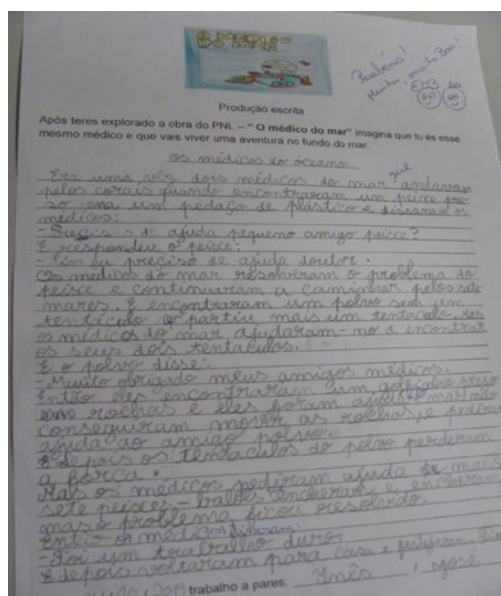 O MÉDICO
DO MAR
Parabéns!
muito Bom!
Produção escrita
Após teres explorado a obra do PNL – “ O médico do mar” imagina que tu és esse
mesmo médico e que vais viver uma aventura no fundo do mar.
Os médicos do oceano.
Era uma vez dois médicos do mar que andavam
pelos corais quando encontraram um peixe pre-
so em um pedaço de plástico e disseram os
médicos:
- Precisas de ajuda pequeno amigo peixe?
E respondeu o peixe:
- Sim eu preciso de ajuda doutor.
Os médicos do mar resolveram o problema do
peixe e continuaram a caminhar pelos sete
mares. E encontraram um polvo sem um
tentículo partiu mais um tentaculo. Mas
os médicos do mar ajudaram-no a encontrar
os seus dois tentaculos.
E o polvo disse:
- Muito obrigado meus amigos médicos.
Então eles encontraram um golfinho preso
rochas e eles foram ajudar mas não
conseguiram mover as rochas, e pediram
ajuda ao amigo polvo.
E depois os tentaculos do polvo perderam
a força.
Mas os médicos pediram ajuda de mais
sete peixes-balões encheram, e encheram
mas o problema ficou resolvido.
Entio os médicos disseram:
- Foi um trabalho duro.
E depois voltaram para casa e festejaram.
trabalho a pares: Inês i José